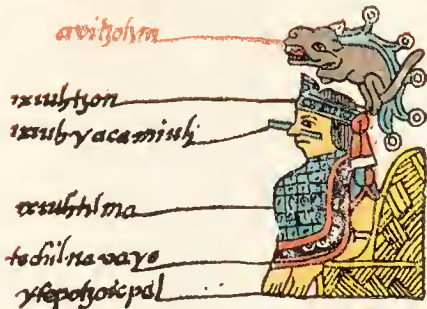 avitzotzin
ixiuhtzon
ixiuhyacamiuh
ixiuhtilma
techilnavayo
ytepotzoicpal